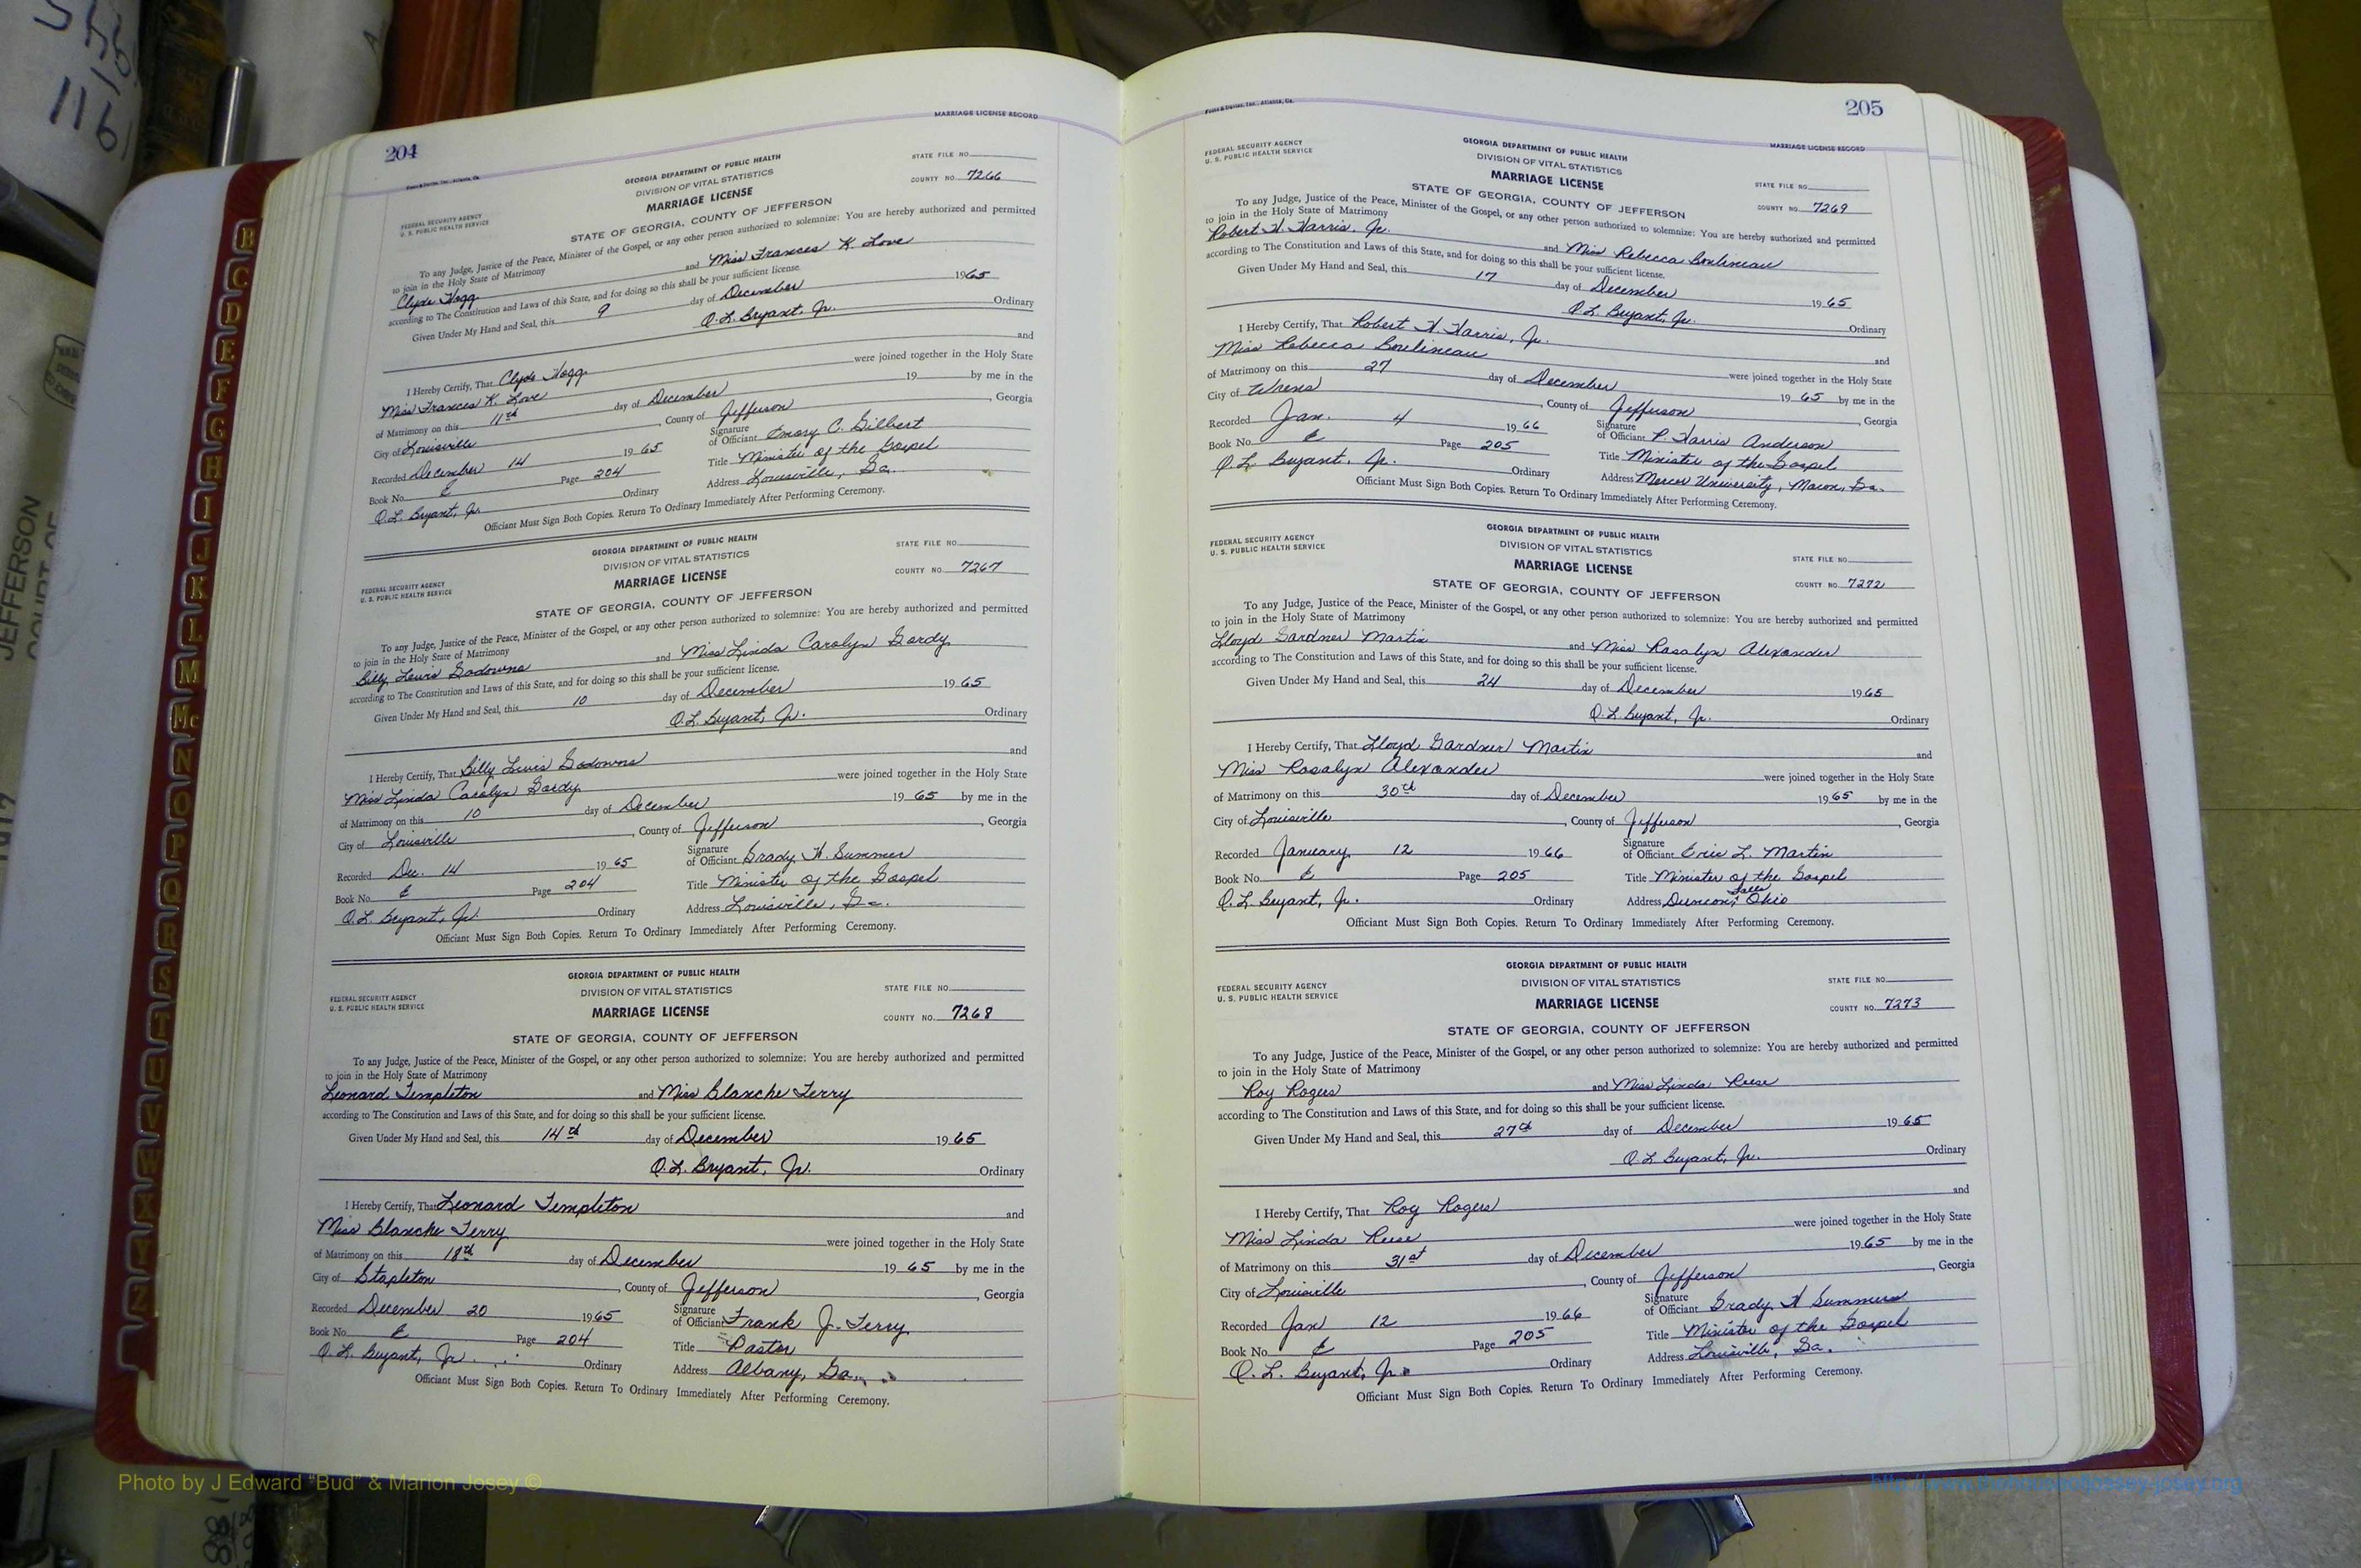 204
MARRIAGE LICENSE RECORD
Foote & Davies, Inc., Atlanta, Ga.
FEDERAL SECURITY AGENCY
U. S. PUBLIC HEALTH SERVICE
GEORGIA DEPARTMENT OF PUBLIC HEALTH
DIVISION OF VITAL STATISTICS
MARRIAGE LICENSE
STATE OF GEORGIA, COUNTY OF JEFFERSON
STATE FILE NO.
COUNTY NO. 7266
To any Judge, Justice of the Peace, Minister of the Gospel, or any other person authorized to solemnize: You are hereby authorized and permitted
to join in the Holy State of Matrimony
Clyde Hogg and Miss Frances K Love
according to The Constitution and Laws of this State, and for doing so this shall be your sufficient license.
Given Under My Hand and Seal, this 9 day of December 1965
Q.L. Bryant, Jr. Ordinary
I Hereby Certify, That Clyde Hogg and
Miss Frances K. Love were joined together in the Holy State
of Matrimony on this 11th day of December 19 by me in the
City of Louisville, County of Jefferson, Georgia
Recorded December 14 1965 Signature of Officiant Emory C. Gilbert
Book No. E Page 204 Title Minister of the Gospel
Q.L. Bryant, Jr. Ordinary Address Louisville, Ga.
Officiant Must Sign Both Copies. Return To Ordinary Immediately After Performing Ceremony.
FEDERAL SECURITY AGENCY
U. S. PUBLIC HEALTH SERVICE
GEORGIA DEPARTMENT OF PUBLIC HEALTH
DIVISION OF VITAL STATISTICS
MARRIAGE LICENSE
STATE OF GEORGIA, COUNTY OF JEFFERSON
STATE FILE NO.
COUNTY NO. 7267
To any Judge, Justice of the Peace, Minister of the Gospel, or any other person authorized to solemnize: You are hereby authorized and permitted
to join in the Holy State of Matrimony
Billy Lewis Gadowns and Miss Linda Carolyn Gordy
according to The Constitution and Laws of this State, and for doing so this shall be your sufficient license.
Given Under My Hand and Seal, this 10 day of December 1965
Q.L. Bryant, Jr. Ordinary
I Hereby Certify, That Billy Lewis Gadowns and
Miss Linda Carolyn Gordy were joined together in the Holy State
of Matrimony on this 10 day of December 1965 by me in the
City of Louisville, County of Jefferson, Georgia
Recorded Dec. 14 1965 Signature of Officiant Grady H. Summer
Book No. E Page 204 Title Minister of the Gospel
Q.L. Bryant, Jr. Ordinary Address Louisville, Ga.
Officiant Must Sign Both Copies. Return To Ordinary Immediately After Performing Ceremony.
FEDERAL SECURITY AGENCY
U. S. PUBLIC HEALTH SERVICE
GEORGIA DEPARTMENT OF PUBLIC HEALTH
DIVISION OF VITAL STATISTICS
MARRIAGE LICENSE
STATE OF GEORGIA, COUNTY OF JEFFERSON
STATE FILE NO.
COUNTY NO. 7268
To any Judge, Justice of the Peace, Minister of the Gospel, or any other person authorized to solemnize: You are hereby authorized and permitted
to join in the Holy State of Matrimony
Leonard Templeton and Miss Blanche Terry
according to The Constitution and Laws of this State, and for doing so this shall be your sufficient license.
Given Under My Hand and Seal, this 14th day of December 1965
Q.L. Bryant, Jr. Ordinary
I Hereby Certify, That Leonard Templeton and
Miss Blanche Terry were joined together in the Holy State
of Matrimony on this 18th day of December 1965 by me in the
City of Stapleton, County of Jefferson, Georgia
Recorded December 20 1965 Signature of Officiant Frank J. Terry
Book No. E Page 204 Title Pastor
Q.L. Bryant, Jr. Ordinary Address Albany, Ga.
Officiant Must Sign Both Copies. Return To Ordinary Immediately After Performing Ceremony.
205
Foote & Davies, Inc., Atlanta, Ga.
MARRIAGE LICENSE RECORD
FEDERAL SECURITY AGENCY
U. S. PUBLIC HEALTH SERVICE
GEORGIA DEPARTMENT OF PUBLIC HEALTH
DIVISION OF VITAL STATISTICS
MARRIAGE LICENSE
STATE OF GEORGIA, COUNTY OF JEFFERSON
STATE FILE NO.
COUNTY NO. 7269
To any Judge, Justice of the Peace, Minister of the Gospel, or any other person authorized to solemnize: You are hereby authorized and permitted
to join in the Holy State of Matrimony
Robert H. Harris, Jr. and Miss Rebecca Boulineau
according to The Constitution and Laws of this State, and for doing so this shall be your sufficient license.
Given Under My Hand and Seal, this 17 day of December 1965
Q.L. Bryant, Jr. Ordinary
I Hereby Certify, That Robert H. Harris, Jr. and
Miss Rebecca Boulineau were joined together in the Holy State
of Matrimony on this 27 day of December 1965 by me in the
City of Wrens, County of Jefferson, Georgia
Recorded Jan. 4 1966 Signature of Officiant P. Harris Anderson
Book No. E Page 205 Title Minister of the Gospel
Q.L. Bryant, Jr. Ordinary Address Mercer University, Macon, Ga.
Officiant Must Sign Both Copies. Return To Ordinary Immediately After Performing Ceremony.
FEDERAL SECURITY AGENCY
U. S. PUBLIC HEALTH SERVICE
GEORGIA DEPARTMENT OF PUBLIC HEALTH
DIVISION OF VITAL STATISTICS
MARRIAGE LICENSE
STATE OF GEORGIA, COUNTY OF JEFFERSON
STATE FILE NO.
COUNTY NO. 7272
To any Judge, Justice of the Peace, Minister of the Gospel, or any other person authorized to solemnize: You are hereby authorized and permitted
to join in the Holy State of Matrimony
Lloyd Gardner Martin and Miss Rosalyn Alexander
according to The Constitution and Laws of this State, and for doing so this shall be your sufficient license.
Given Under My Hand and Seal, this 24 day of December 1965
Q.L. Bryant, Jr. Ordinary
I Hereby Certify, That Lloyd Gardner Martin and
Miss Rosalyn Alexander were joined together in the Holy State
of Matrimony on this 30th day of December 1965 by me in the
City of Louisville, County of Jefferson, Georgia
Recorded January 12 1966 Signature of Officiant Eric L. Martin
Book No. E Page 205 Title Minister of the Gospel
Q.L. Bryant, Jr. Ordinary Address Duncan Falls, Ohio
Officiant Must Sign Both Copies. Return To Ordinary Immediately After Performing Ceremony.
FEDERAL SECURITY AGENCY
U. S. PUBLIC HEALTH SERVICE
GEORGIA DEPARTMENT OF PUBLIC HEALTH
DIVISION OF VITAL STATISTICS
MARRIAGE LICENSE
STATE OF GEORGIA, COUNTY OF JEFFERSON
STATE FILE NO.
COUNTY NO. 7273
To any Judge, Justice of the Peace, Minister of the Gospel, or any other person authorized to solemnize: You are hereby authorized and permitted
to join in the Holy State of Matrimony
Roy Rogers and Miss Linda Reese
according to The Constitution and Laws of this State, and for doing so this shall be your sufficient license.
Given Under My Hand and Seal, this 27th day of December 1965
Q.L. Bryant, Jr. Ordinary
I Hereby Certify, That Roy Rogers and
Miss Linda Reese were joined together in the Holy State
of Matrimony on this 31st day of December 1965 by me in the
City of Louisville, County of Jefferson, Georgia
Recorded Jan 12 1966 Signature of Officiant Grady H Summers
Book No. E Page 205 Title Minister of the Gospel
Q.L. Bryant, Jr. Ordinary Address Louisville, Ga.
Officiant Must Sign Both Copies. Return To Ordinary Immediately After Performing Ceremony.
B
C
D
E
F
G
H
I
J
K
L
M
Mc
N
O
P
Q
R
S
T
U
V
W
X
Y
Z
JEFFERSON
1161
Photo by J Edward "Bud" & Marion Josey ©